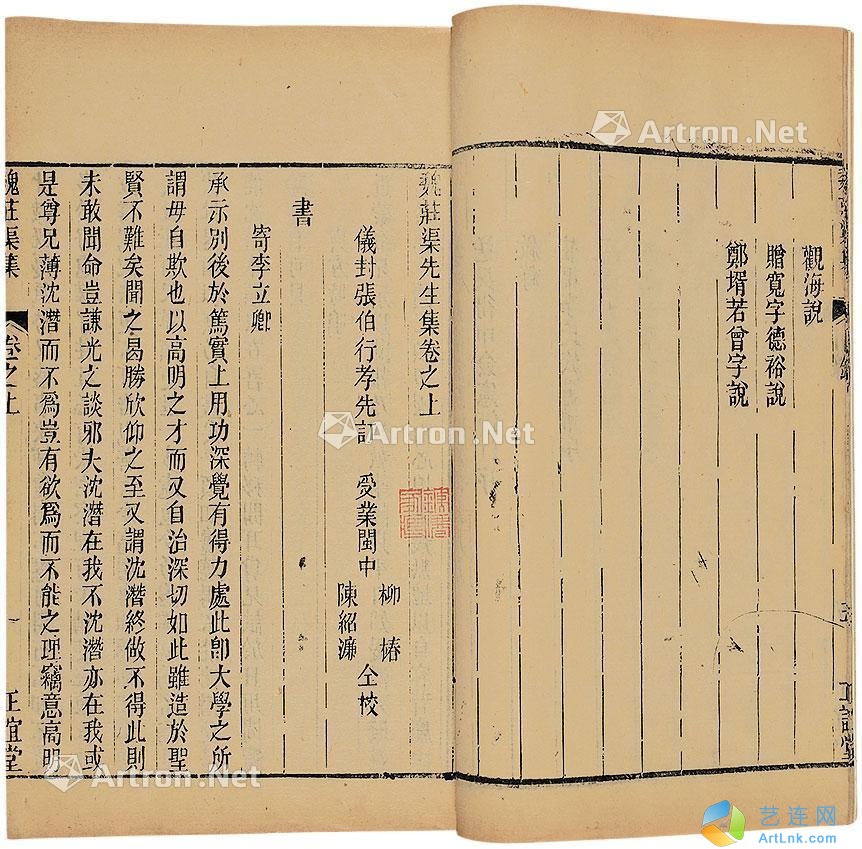 觀海說
贈寬字德裕說
鄭壻若曾字說
正誼堂
魏莊渠先生集卷之上
儀封張伯行孝先訂 受業閩中
柳椿
陳紹濂
仝校
書
寄李立卿
承示別後於篤實上用功深覺有得力處此卽大學之所
謂毋自欺也以高明之才而又自治深切如此雖造於聖
賢不難矣聞之曷勝欣仰之至又謂沈潛終做不得此則
未敢聞命豈謙光之談邪夫沈潛在我不沈潛亦在我或
是尊兄薄沈潛而不爲豈有欲爲而不能之理竊意高明
魏莊渠集
卷之上
一
正誼堂
Artron.Net
Artron.Net
Artron.Net
艺连网
ArtLnk.com